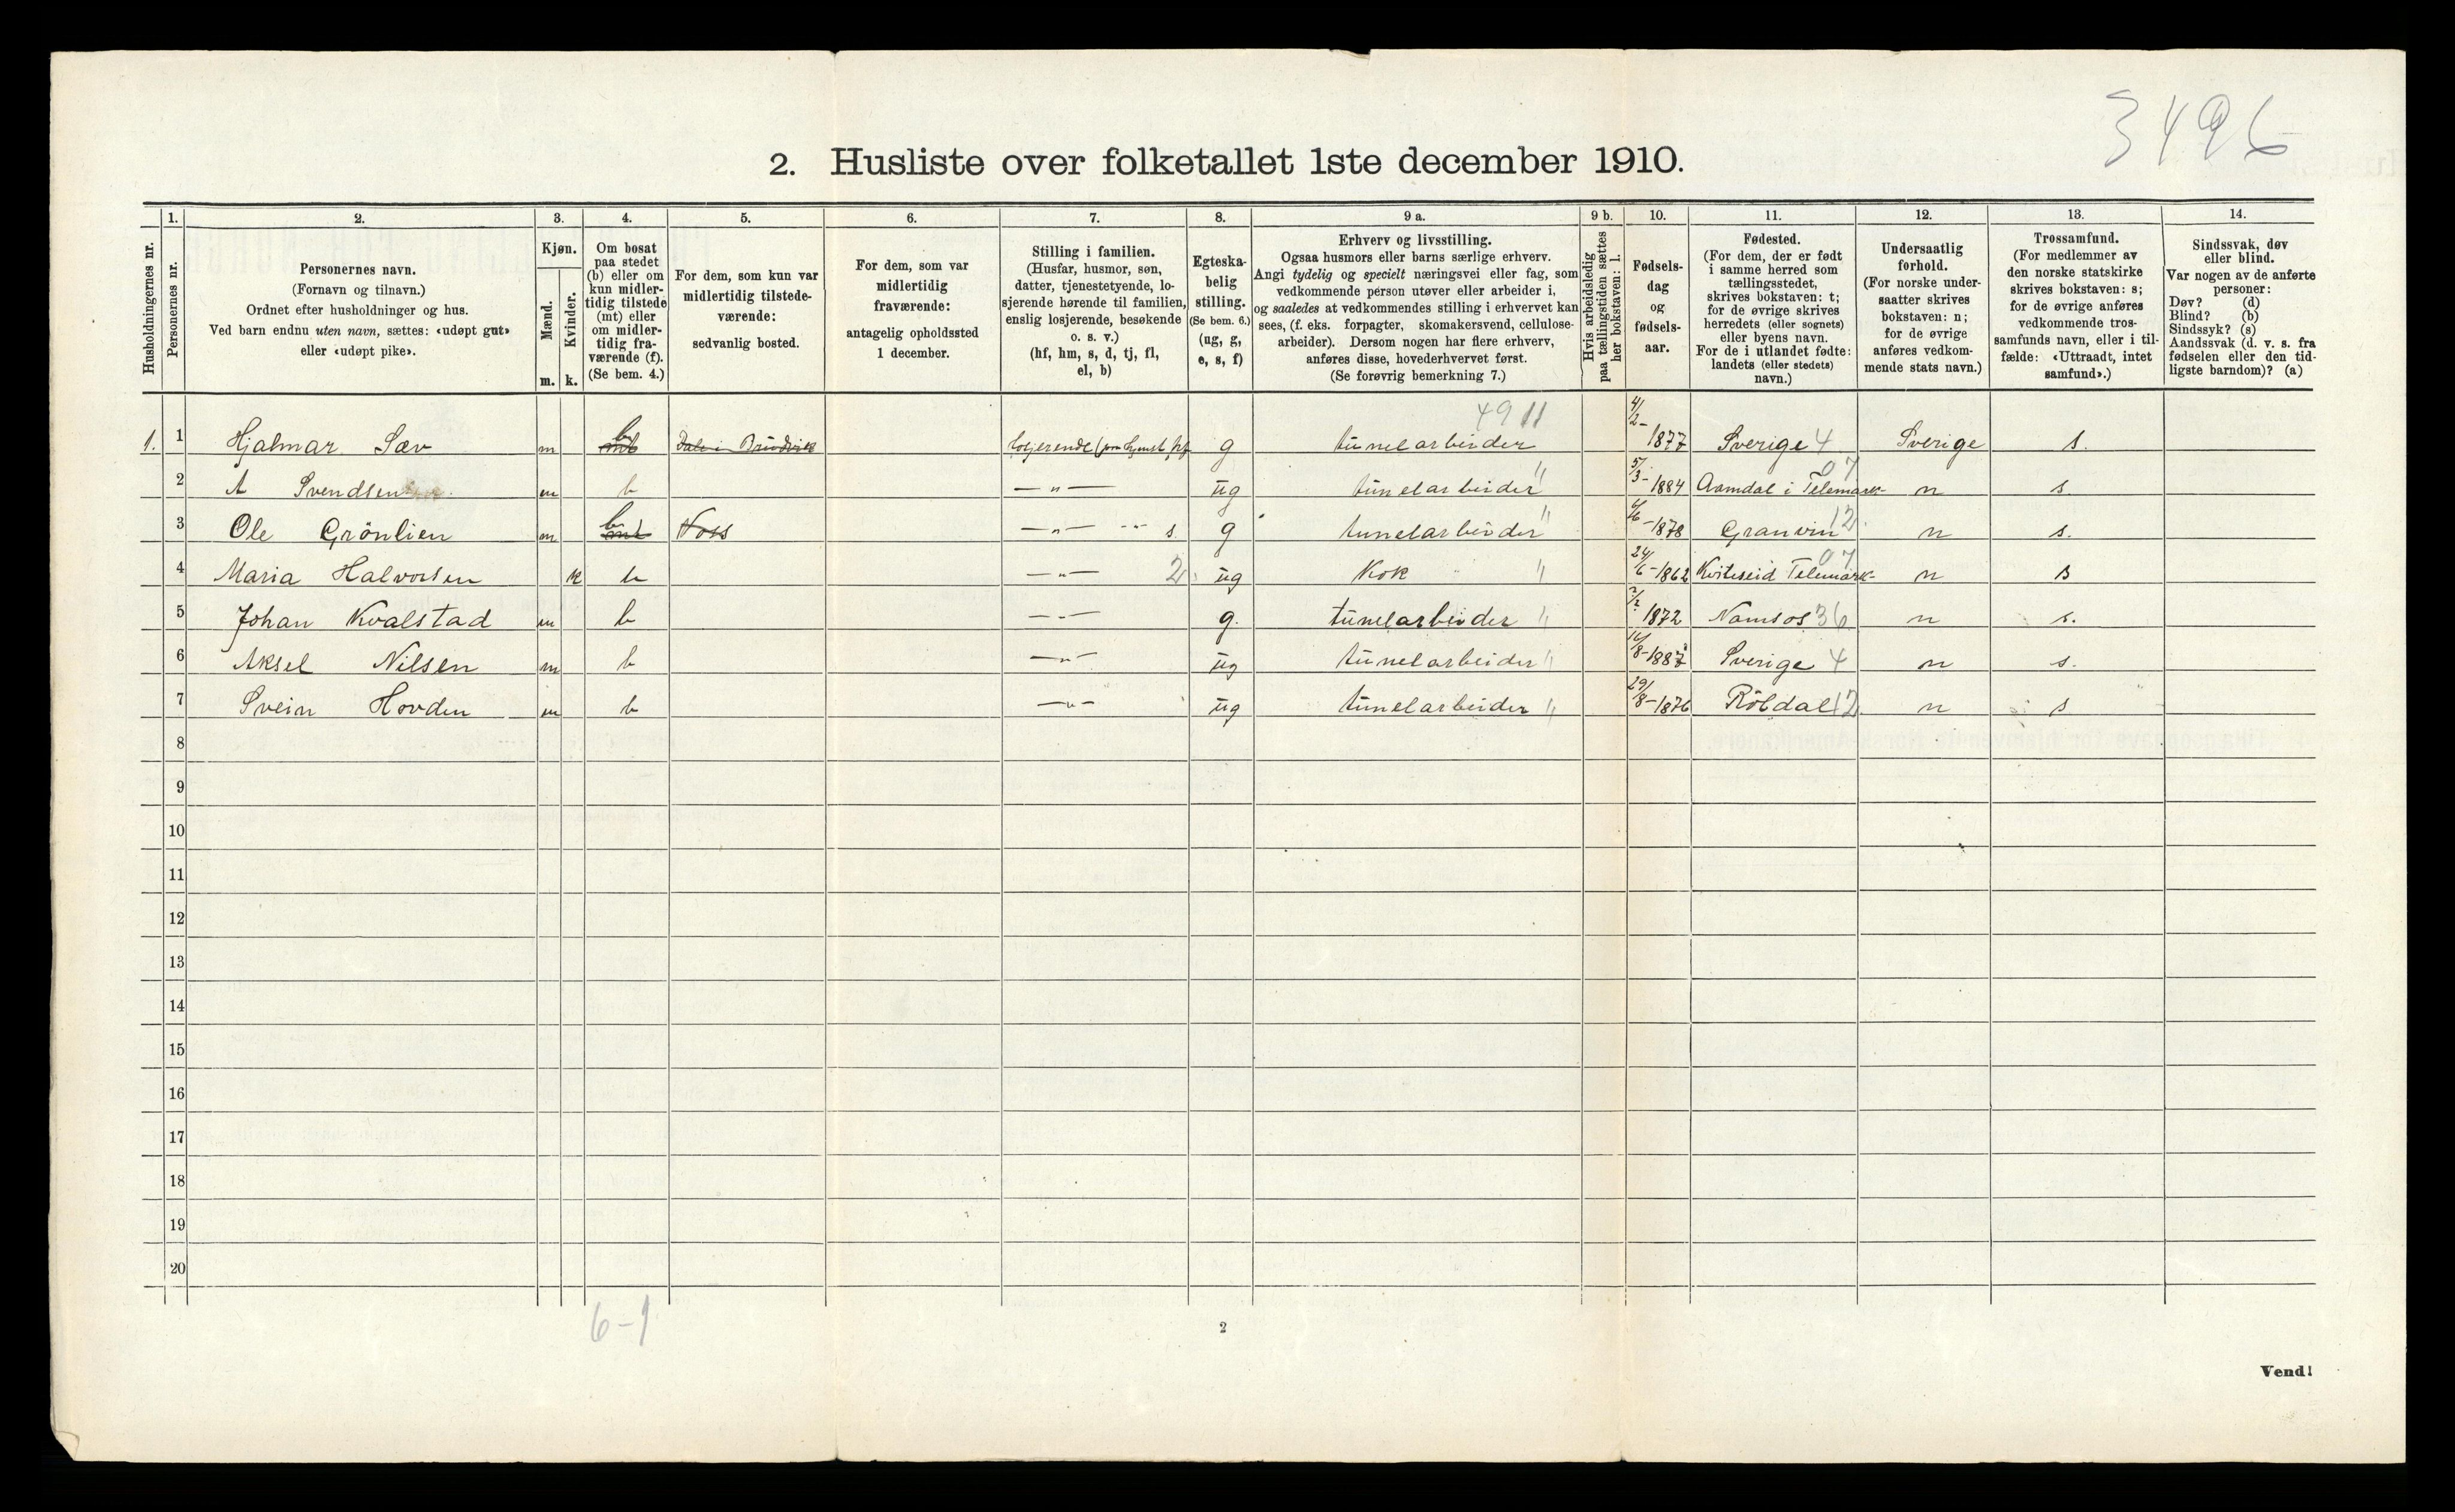 3496
2. Husliste over folketallet 1ste december 1910.
Husholdningernes nr.
1.
Personernes nr.
2.
Personernes navn.
(Fornavn og tilnavn.)
Ordnet efter husholdninger og hus.
Ved barn endnu uten navn, sættes: «udøpt gut»
eller «udøpt pike».
3.
Kjøn.
Mænd.
m.
Kvinder.
k.
4.
Om bosat
paa stedet
(b) eller om
kun midler-
tidig tilstede
(mt) eller
om midler-
tidig fra-
værende (f).
(Se bem. 4.)
5.
For dem, som kun var
midlertidig tilstede-
værende:
sedvanlig bosted.
6.
For dem, som var
midlertidig
fraværende:
antagelig opholdssted
1 december.
7.
Stilling i familien.
(Husfar, husmor, søn,
datter, tjenestetyende, lo-
sjerende hørende til familien,
enslig losjerende, besøkende
o. s. v.)
(hf, hm, s, d, tj, fl,
el, b)
8.
Egteska-
belig
stilling.
(Se bem. 6.)
(ug, g,
e, s, f)
9 a.
Erhverv og livsstilling.
Ogsaa husmors eller barns særlige erhverv.
Angi tydelig og specielt næringsvei eller fag, som
vedkommende person utøver eller arbeider i,
og saaledes at vedkommendes stilling i erhvervet kan
sees, (f. eks. forpagter, skomakersvend, cellulose-
arbeider). Dersom nogen har flere erhverv,
anføres disse, hovederhvervet først.
(Se forøvrig bemerkning 7.)
9 b.
Hvis arbeidsledig
paa tællingstiden sættes
her bokstaven: l.
10.
Fødsels-
dag
og
fødsels-
aar.
11.
Fødested.
(For dem, der er født
i samme herred som
tællingsstedet,
skrives bokstaven: t;
for de øvrige skrives
herredets (eller sognets)
eller byens navn.
For de i utlandet fødte:
landets (eller stedets)
navn.)
12.
Undersaatlig
forhold.
(For norske under-
saatter skrives
bokstaven: n;
for de øvrige
anføres vedkom-
mende stats navn.)
13.
Trossamfund.
(For medlemmer av
den norske statskirke
skrives bokstaven: s;
for de øvrige anføres
vedkommende tros-
samfunds navn, eller i til-
fælde: «Uttraadt, intet
samfund».)
14.
Sindssvak, døv
eller blind.
Var nogen av de anførte
personer:
Døv? (d)
Blind? (b)
Sindssyk? (s)
Aandssvak (d. v. s. fra
fødselen eller den tid-
ligste barndom)? (a)
4911
1. 1 Hjalmar Sæv m b mt Dale i Bruvik losjerende g tunelarbeider 4/2-1877 Sverige 4 Sverige s.
2 A Svendsen m b —"— ug tunelarbeider " 5/3-1884 Aamdal i Telemark- 07 n s
3 Ole Grönlien m b mt Voss —"— s. g tunelarbeider " 6/6-1878 Granvin 12 n s.
4 Maria Halvorsen k b —"— 2 ug Kok " 24/6-1862 Kviteseid Telemark- 07 n s
5 Johan Kvalstad m b —"— g. tunelarbeider " 1872 Namsos 36 n s.
6 Aksel Nilsen m b —"— ug tunelarbeider " 16/8-1887 Sverige 4 n s.
7 Svein Hovden m b —"— ug tunelarbeider " 29/8-1876 Röldal 12 n s
8
9
10
11
12
13
14
15
16
17
18
19
20
6-1
2
Vend!